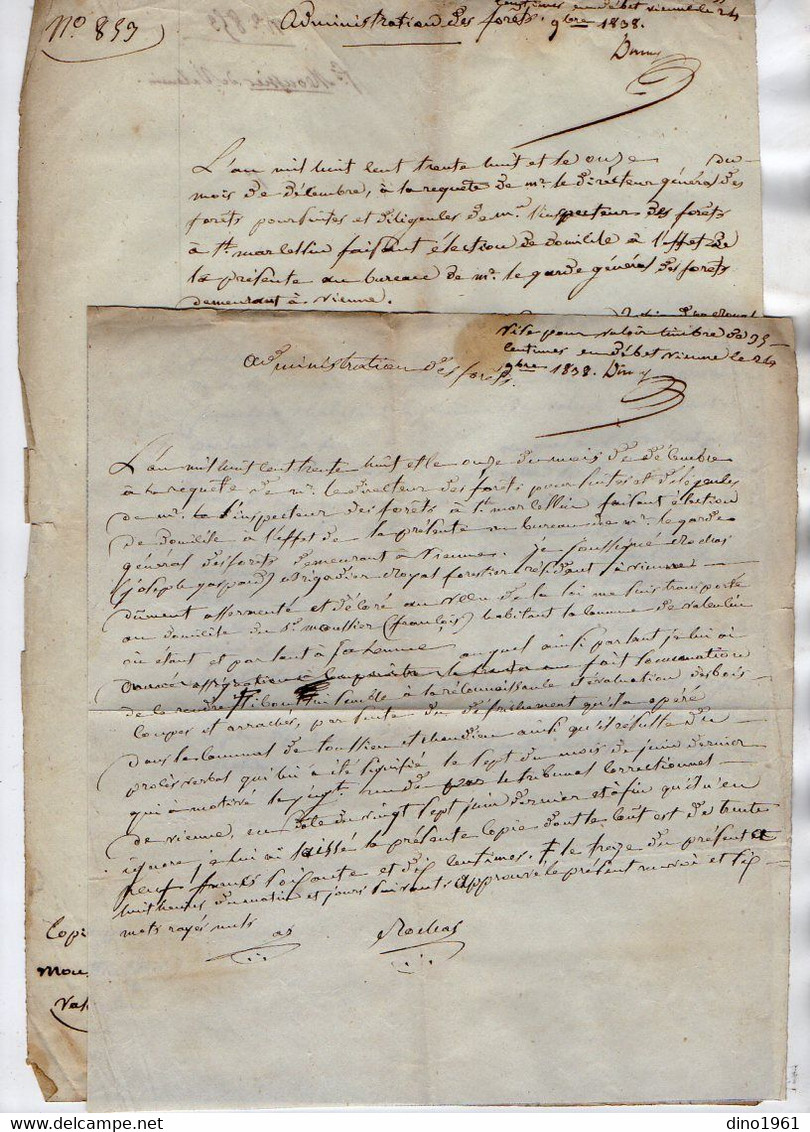 N° 853
Administration des forêts.
centimes en débet vienne le 24
9bre 1838.
L'an mil huit cent trente huit et le onze du
mois de décembre, à la requête de mr. le directeur général des
forêts poursuites et diligences de mr. l'inspecteur des forêts
à st. marcellin faisant élection de domicile à l'effet de
la présente au bureau de mr. le garde général des forêts
demeurant à vienne.
Visé pour valoir timbre de 35
centimes en débet vienne le 24
9bre 1838.
Administration des forêts.
L'an mil huit cent trente huit et le onze du mois de décembre
à la requête de mr. le directeur des forêts poursuites et diligences
de mr. l'inspecteur des forêts à st marcellin faisant élection
de domicile à l'effet de la présente au bureau de mr. le garde
général des forêts demeurant à vienne. je soussigné Rochas
(joseph gaspard) Brigadier Royal forestier résidant à vienne
dûment assermenté et décoré au vœu de la loi me suis transporté
au domicile du sr. moussier (françois) habitant la commune de valencin
où étant et parlant à sa femme auquel ainsi parlant je lui ai
fait sommation
de se rendre ensemble à la reconnaissance et évaluation des bois
coupés et arrachés, par suite du défrichement qu'il a opéré
dans la commune de toussieu et chandieu ainsi qu'il résulte du
procès verbal qui lui a été signifié le sept du mois de juin dernier
qui a motivé le jugt. rendu par le tribunal correctionnel
de vienne, en date du vingt sept juin dernier et afin qu'il n'en
ignore, je lui ai laissé la présente copie dont le coût est de trente
neuf francs soixante et dix centimes. le treize du présent à
huit heures du matin et jours suivants approuvé le présent renvoi et six
mots rayés nuls
Rochas
Copi
Mou
Val
dino1961